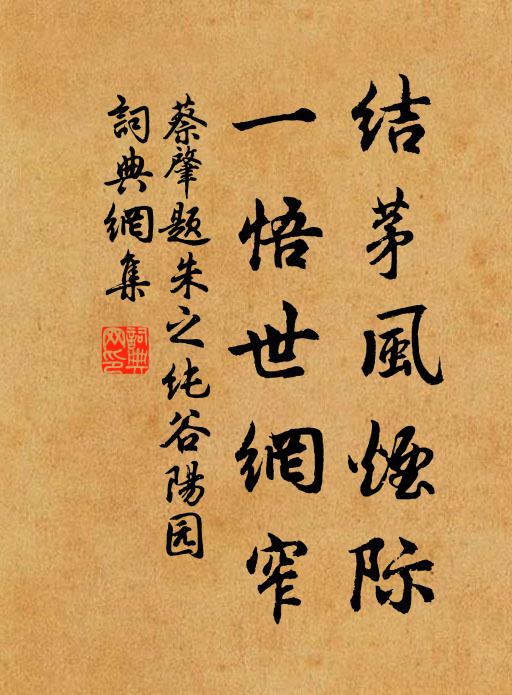 结茅風煙际
一悟世網窄
蔡肇题朱之纯谷陽园
詞典網集
詞典
网印